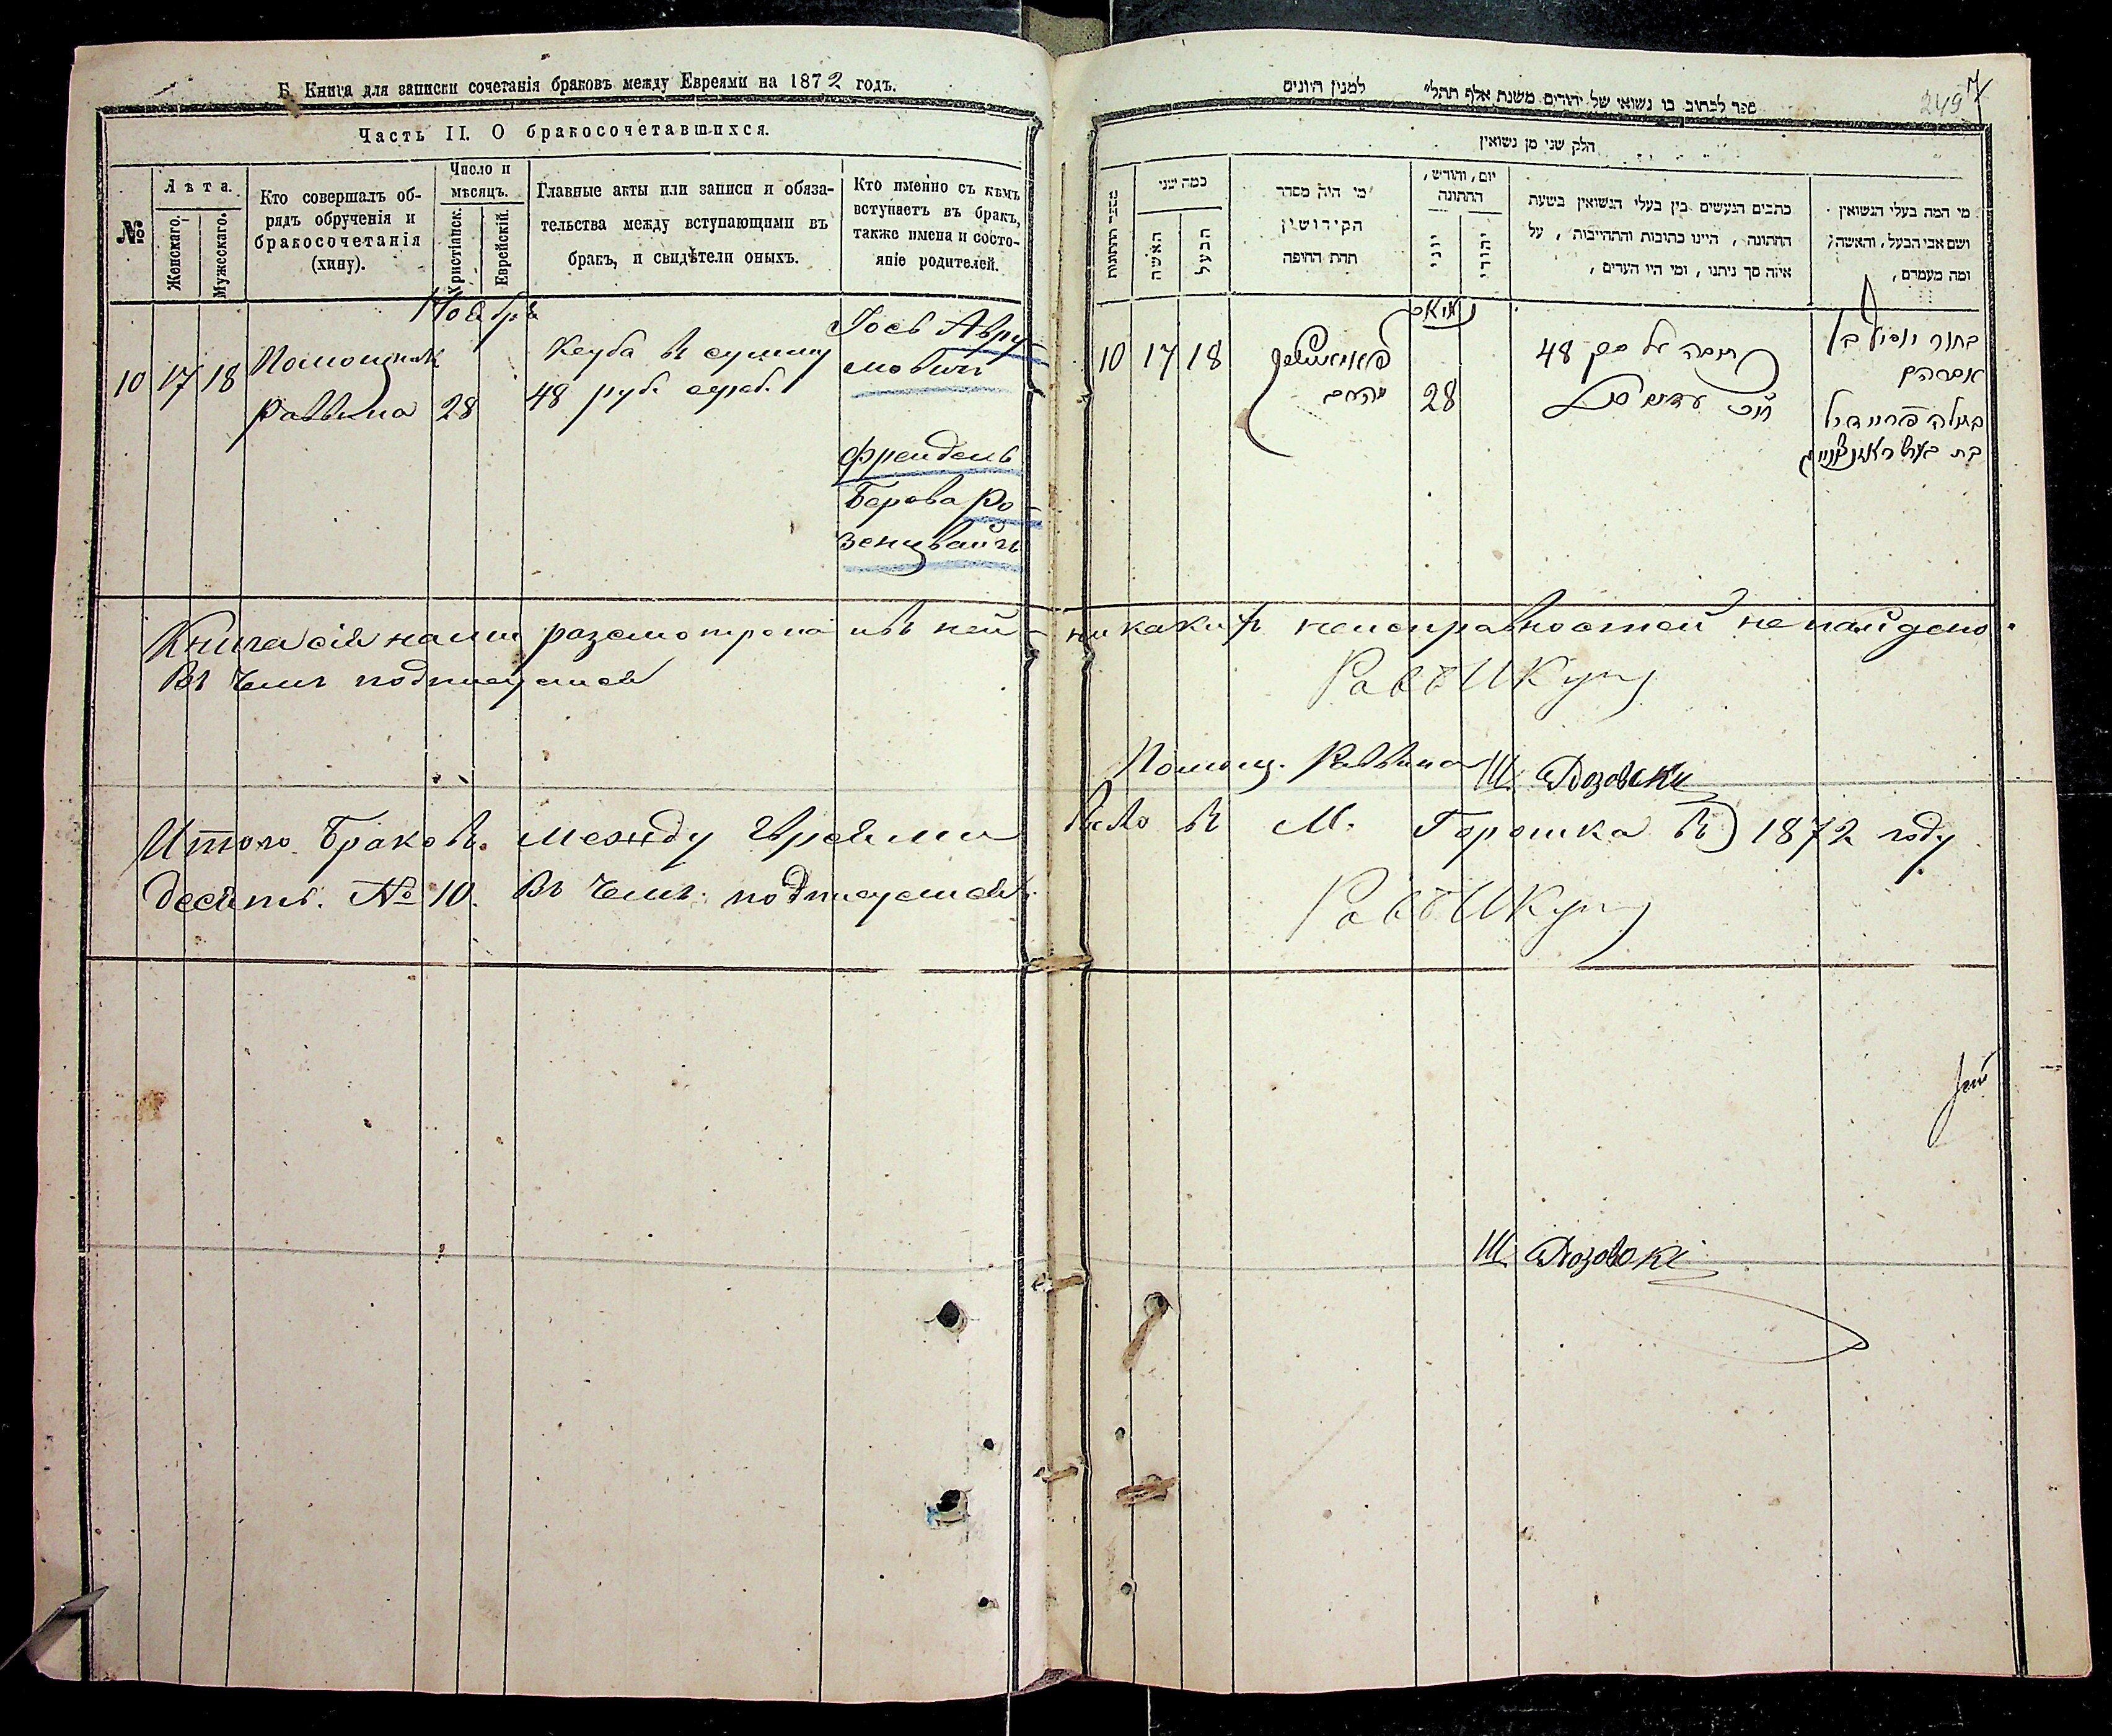 Б. Книга для записки сочетанія браковъ между Евреями на 1872 годъ.
Часть II. О бракосочетавшихся.
№
Лѣта.
Женскаго.
Мужескаго.
Кто совершалъ об-
рядъ обрученія и
бракосочетанія
(хину).
Число и
мѣсяцъ.
Христіанск.
Еврейскій.
Главные акты или записи и обяза-
тельства между вступающими въ
бракъ, и свидѣтели оныхъ.
Кто именно съ кѣмъ
вступаетъ въ бракъ,
также имена и состо-
яніе родителей.
Ноября
10 17 18
Помощник
раввина
28
Кеуба въ сумму
48 руб. сереб.
Іось Авру-
мовичъ
Фрейдель
Берова Ро-
зенцвайгъ
Книга сія нами разсмотрена и въ ней
Въ чемъ подписуемся
Итого браковъ между Евреями
десять. № 10. Въ чемъ подписуемся.
ספר לכתוב בו נשואי של יהודים משנת אלף תתל״ למנין היונים
249
7
חלק שני מן נשואין
מספר החתונות
כמה שני
האשה
הבעל
מי היה מסדר
הקידושין
תחת החופה
יום, וחודש,
החתונה
יוני
יהודי
כתבים הנעשים בין בעלי הנשואין בשעת
החתונה, היינו כתובות והתחייבות, על
איזה סך ניתנו, ומי היו העדים,
מי המה בעלי הנשואין
ושם אבי הבעל, והאשה,
ומה מעמדם,
10 17 18
28
48
בחור יוסף בן
אברהם
בתולה פריידיל
בת בער ראזנצווייג
никакихъ неисправностей не найдено.
Помощ. Раввина Ш.
было въ М. Горошка въ 1872 году
Ш.